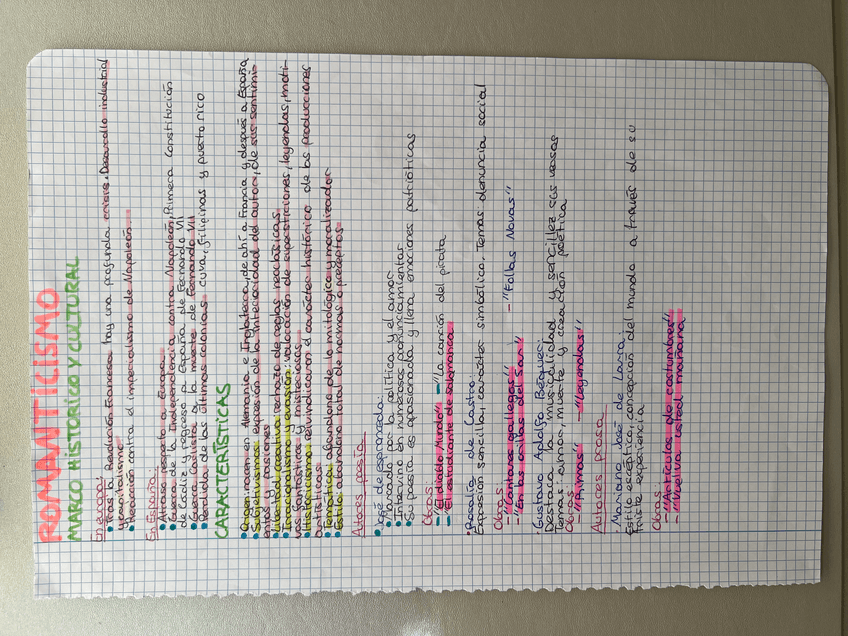 ROMANTICISMO
MARCO HISTÓRICO Y CULTURAL
En europa:
• Tras la Revolución Francesa hay una profunda crisis. Desarrollo industrial
y capitalismo
• Reacción contra el imperialismo de Napoleón.
En España:
• Atraso respecto a Europa
• Guerra de la Independencia contra Napoleón, Primera Constitución
de Cádiz y regreso a España de Fernando VII
• Guerra carlista a la muerte de Fernando VII
• Pérdida de las últimas colonias: cuba, filipinas y puerto rico
CARACTERÍSTICAS
• Origen: nacen en Alemania e Inglaterra, de ahí a Francia y después a España
• Subjetivismos: expresión de la interioridad del autor, de sus sentimi-
entos y pasiones
• Libertad creativa: rechazo de reglas neoclásicas
• Irracionalismo y evasión: valoración de supersticiones, leyendas, moti-
vos fantásticos y misteriosos
• Historicismo: reivindicaron el carácter histórico de las producciones
artísticas.
• Temática: abandono de lo mitológico y moralizador
• Estilo: abandono total de normas o preceptos
Autores poesía
• José de espronceda:
- Marcado por la política y el amor
- Intervino en numerosos pronunciamientos
- Su poesía es apasionada y llena emociones patrióticas
Obras:
- "El diablo Mundo" - "La canción del pirata
- "El estudiante de salamanca
• Rosalía de Castro:
Expresión sencilla, carácter simbólico. Temas: denuncia social
Obras:
- "Cantares gallegos" - "Follas Novas"
- "En las orillas del Sar"
• Gustavo Adolfo Béquer:
Destaca la musicalidad y sencillez sus versos
Temas: amor, muerte y creación poética
Obras
- "Rimas" - "Leyendas"
Autores prosa
• Mariano José de Larra
Estilo escéptico, concepción del mundo a través de su
triste experiencia
Obras
- "Artículos de costumbres"
- "Vuelva usted mañana